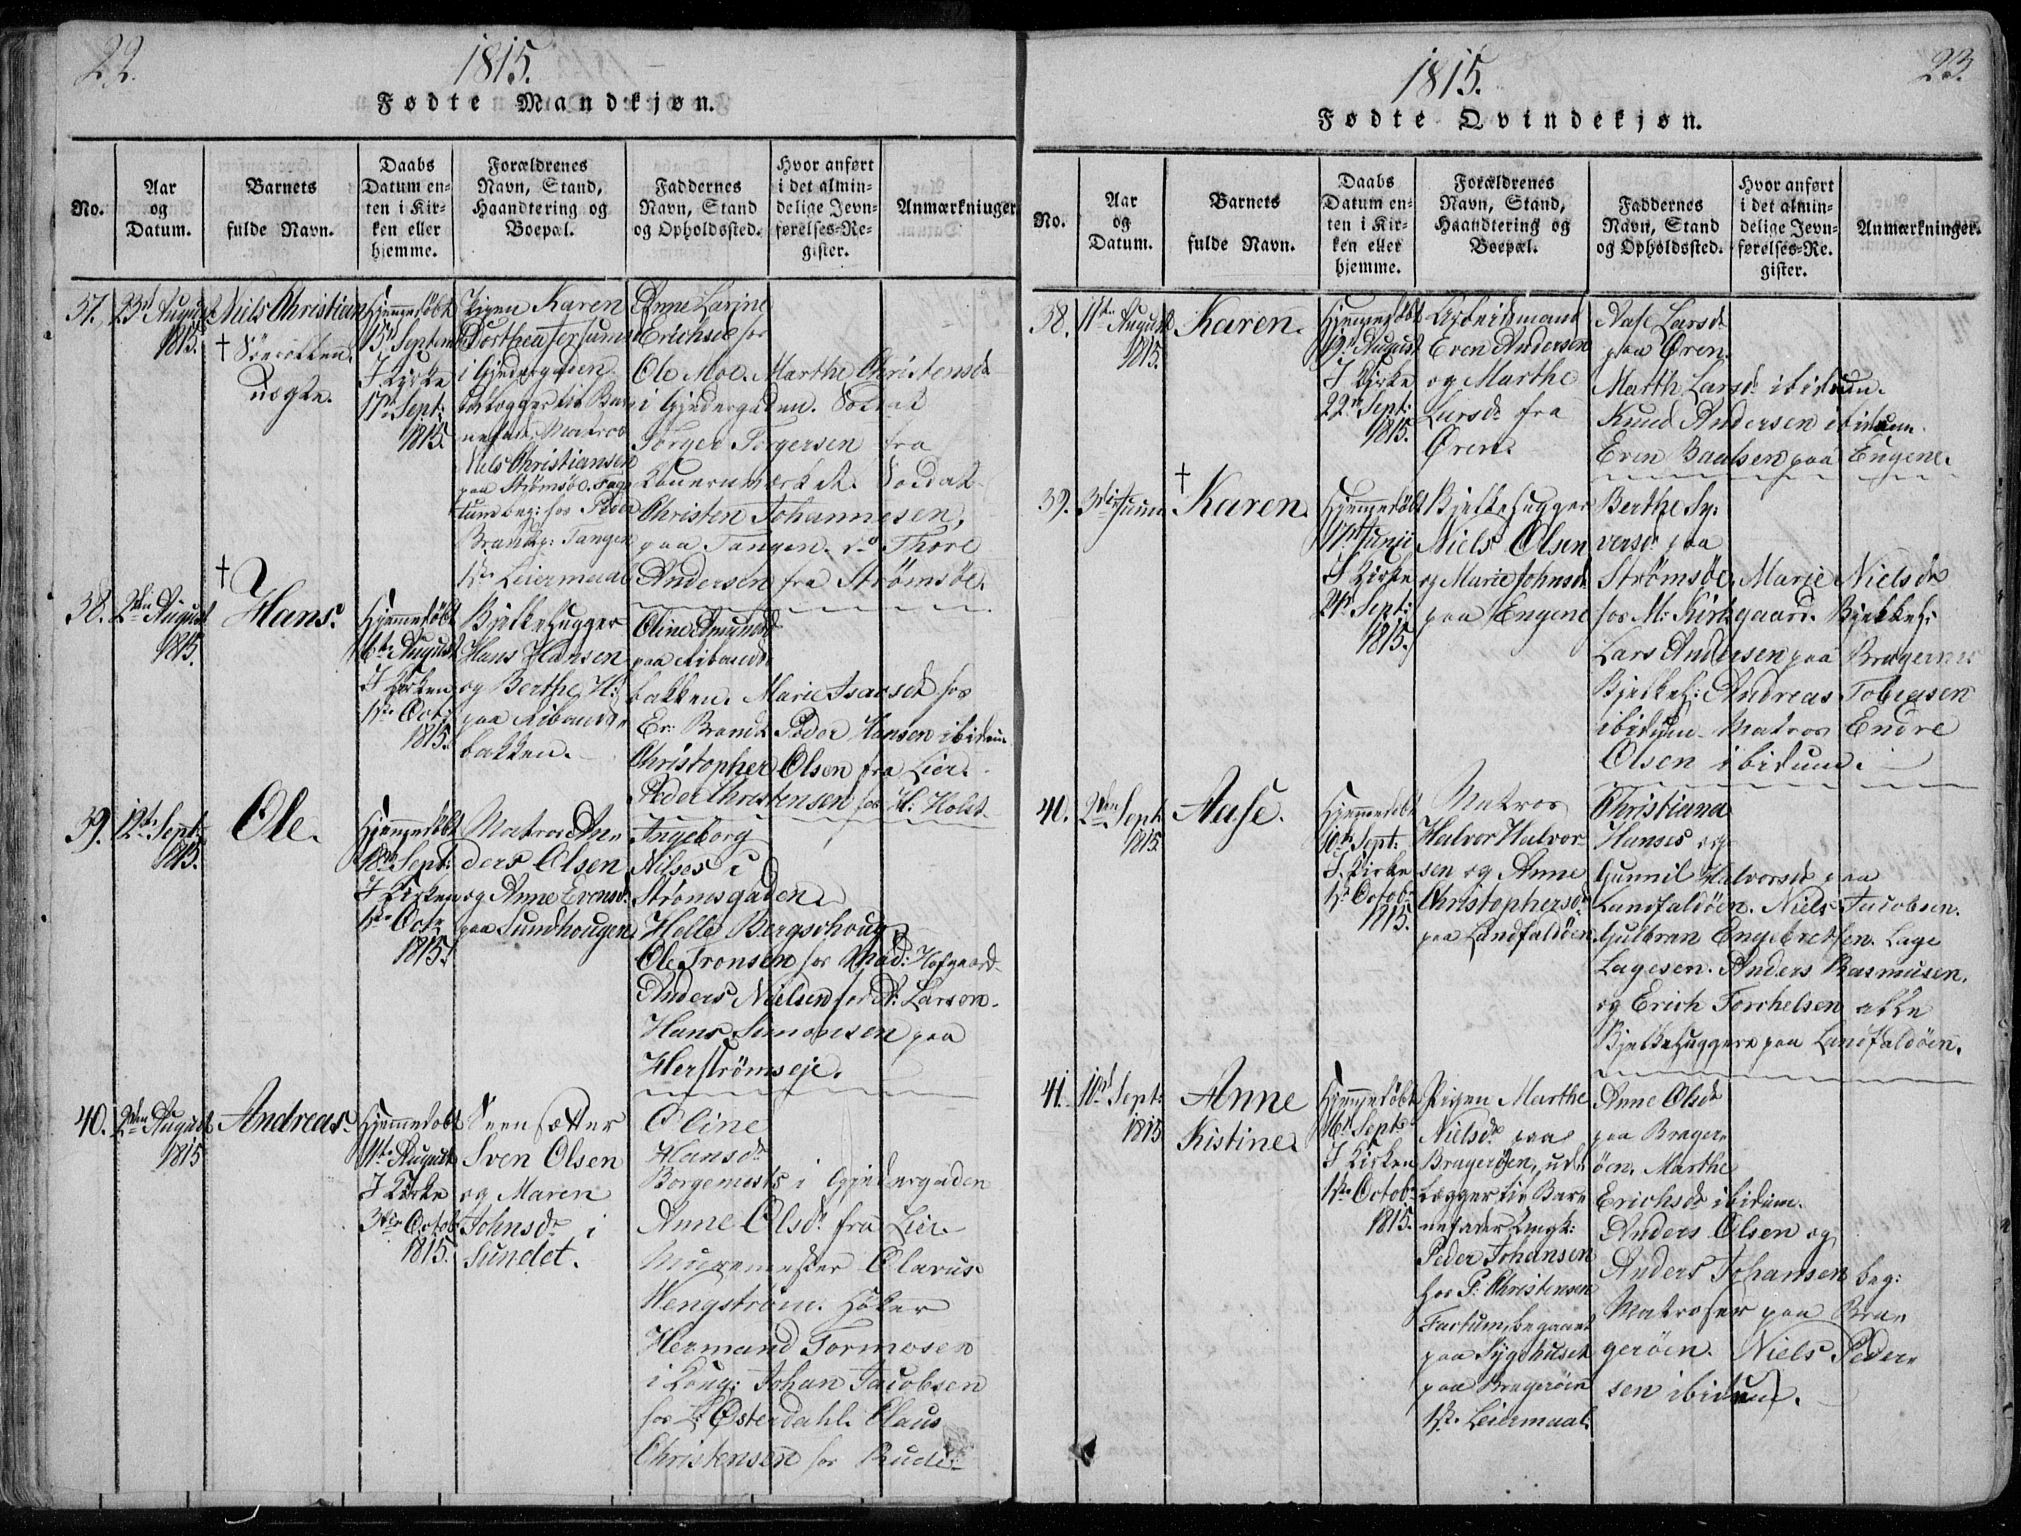 22.
1815.
Fødte Mandkjøn.
No.
Aar
og
Datum.
Barnets
fulde Navn.
Daabs
Datum en-
ten i Kir-
ken eller
hjemme.
Forældrenes
Navn, Stand,
Haandtering og
Boepæl.
Faddernes
Navn, Stand
og Opholdssted.
Hvor anført
i det almin-
delige Jevn-
førelses-Re-
gister.
Anmærkninger
37.
23d August
1815.
Niels Christian
†
uægte.
Hjemmedøbt
15d Septem
I Kirke
17de Sept:
1815.
Pigen Karen
Dorthea
i Gjedergaden
udlægger til Bar
nefader Matros
Niels Christiansen
paa Strømsøe.
Tangen
1ste Leiermaal
Anne Larine
Erichsd hos
Ole Moe. Marthe Christensd
i Gjedergaden. Soldat
Torger Torgersen fra
Soldat
Christen Johannesen,
paa Tangen. do Thore
Andersen fra Strømsøe.
38.
2den August
1815.
†
Hans.
Hjemmedøbt
6te August
I Kirken
1ste Oct:
1815.
Bjelkehugger
Hans Hansen
og Berthe H:
paa
bakken.
Oline Amunds
paa
bakken. Marie Isacsd hos
Er: Brandt Peder Hansen ibidem
Christopher Olsen fra Lier.
Peder Christensen hos H: Holst.
39.
12te Sept:
1815.
Ole.
Hjemmedøbt
18de Sept:
I Kirken
1ste Octr
1815.
Matros An-
ders Olsen
og Anne Evensd.
paa Sundhougen
Ingeborg
Nilses i
Strømsgaden
Helle Bergschoug
Ole Tronsen hos Mad: Hofgaard
Anders Nielsen for A: Larson.
Hans Simonsen paa
Herstrømseje.
40.
2den August
1815
Andreas.
Hjemmedøbt
11te August
I Kirke
3die Octob
1815.
Steensætter
Sven Olsen
og Maren
Johnsdr i
Sundet.
Oline
Hansdr
Borgemests i Gjedergaden
Anne Olsd. fra Lier.
Muremester Olavus
Wengstrøm. Høker
Hermand Tormosen
i Kong: Johan Jacobsen
hos L: Østerdahl. Claus
Christensen for
23.
1815.
Fødte Qvindekjøn.
No.
Aar
og
Datum.
Barnets
fulde Navn.
Daabs
Datum en-
ten i Kir-
ken eller
hjemme.
Forældrenes
Navn, Stand,
Haandtering og
Boepæl.
Faddernes
Navn, Stand
og Opholdssted.
Hvor anført
i det almin-
delige Jevn-
førelses-Re-
gister.
Anmærkninger.
38.
11te August
1815.
Karen.
Hjemmedøbt
19d August
I Kirke
22de Sept:
1815.
Arbeidsmand
Even Andersen
og Marthe
Larsdr fra
Øren.
Aase Larsd
paa Øren.
Marth Larsdr ibidem.
Knud Andersen ibidem.
Even Paulsen paa Eugene.
39.
3die Junii
†
Karen.
Hjemmedøbt
17d Junii
I Kirke
24de Sept:
1815.
Bjelkehugger
Niels Olsen
og Marie Johnsd
paa Engene
Berthe Sy-
versd paa
Strømsøe. Marie Nielsdr
hos M: Kirkgaard. Bjelkeh:
Lars Andersen paa Bragernes
Bjelkeh: Andreas Tobiasen
ibidem Matros Endre
Olsen ibidem.
40.
2den Sept
1815
Aase.
Hjemmedøbt
10de Sept:
I Kirke
1ste Octobr
1815.
Matros
Halvor Halvor-
sen og Anne
Christophersdr
paa Landfaldøen
Christiana
Hanses og
Gunnil Halvorsd paa
Landfaldøen. Niels Jacobsen.
Gulbran Engebretsen. Lage
Lagesen. Anders Rasmusen.
og Erich Torchelsen alle
Bjelkehuggere paa Landfaldøen.
41.
10d Sept:
1815
Anne
Kistine.
Hjemmedøbt
16d Sept:
I Kirken
1ste Octob
1815.
Pigen Marthe
Nielsdr paa
Bragerøen, ud-
lægger til Bar-
nefader Ungk:
Peder Johansen
hos P: Christensen
Factum begaaet
paa Sygehuset
paa Bragerøen
1ste Leiermaal.
Anne Olsdr
paa Brager-
øen. Marthe
Erichsdr ibidem.
Anders Olsen og
Anders Johansen beg:
Matroser paa Bra-
gerøen. Niels Peder-
sen ibidem.